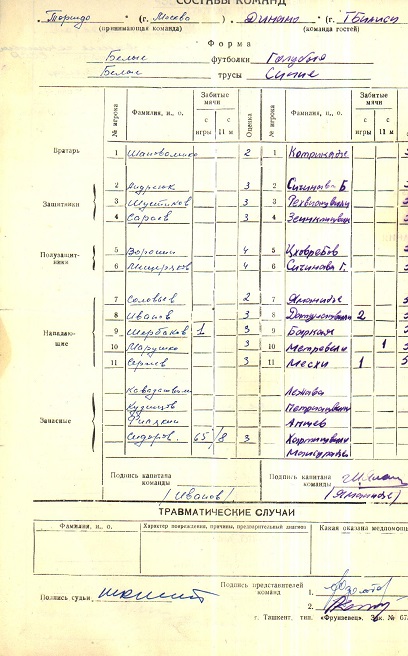 СОСТАВЫ КОМАНД
Торпедо (г. Москва), Динамо (г. Тбилиси
(принимающая команда) (команда гостей)
Форма
Белые футболки Голубые
Белые трусы Синие
№ игрока Фамилия, и., о. Забитые мячи с игры с 11 м Оценка № игрока Фамилия, и., о. Забитые мячи с игры с 11 м
Вратарь 1 Шаповаленко 2 1 Котрикадзе
2 Андреюк 3 2 Сичинава Б
Защитники 3 Шустиков 3 3
4 Сараев 3 4
Полузащитники 5 Воронин 4 5 Цховребов
6 4 6 Сичинава Г.
7 Соловьев 2 7 Яманидзе
Нападающие 8 Иванов 3 8 Датунашвили 2
9 Щербаков 1 3 9 Баркая
10 Марушко 3 10 Метревели 1
11 Сергеев 3 11 Месхи 1
Лежава
Кузнецов Петриашвили
Запасные
Сидоров 65/8 3
Подпись капитана команды (Иванов) Подпись капитана команды (Яманидзе)
ТРАВМАТИЧЕСКИЕ СЛУЧАИ
Фамилия, и., о. Характер повреждения, причины, предварительный диагноз Какая оказана медпомощь
Подпись судьи Подпись представителей команд 1.
2.
г. Ташкент, тип. «Фрунзевец». Зак. № 67